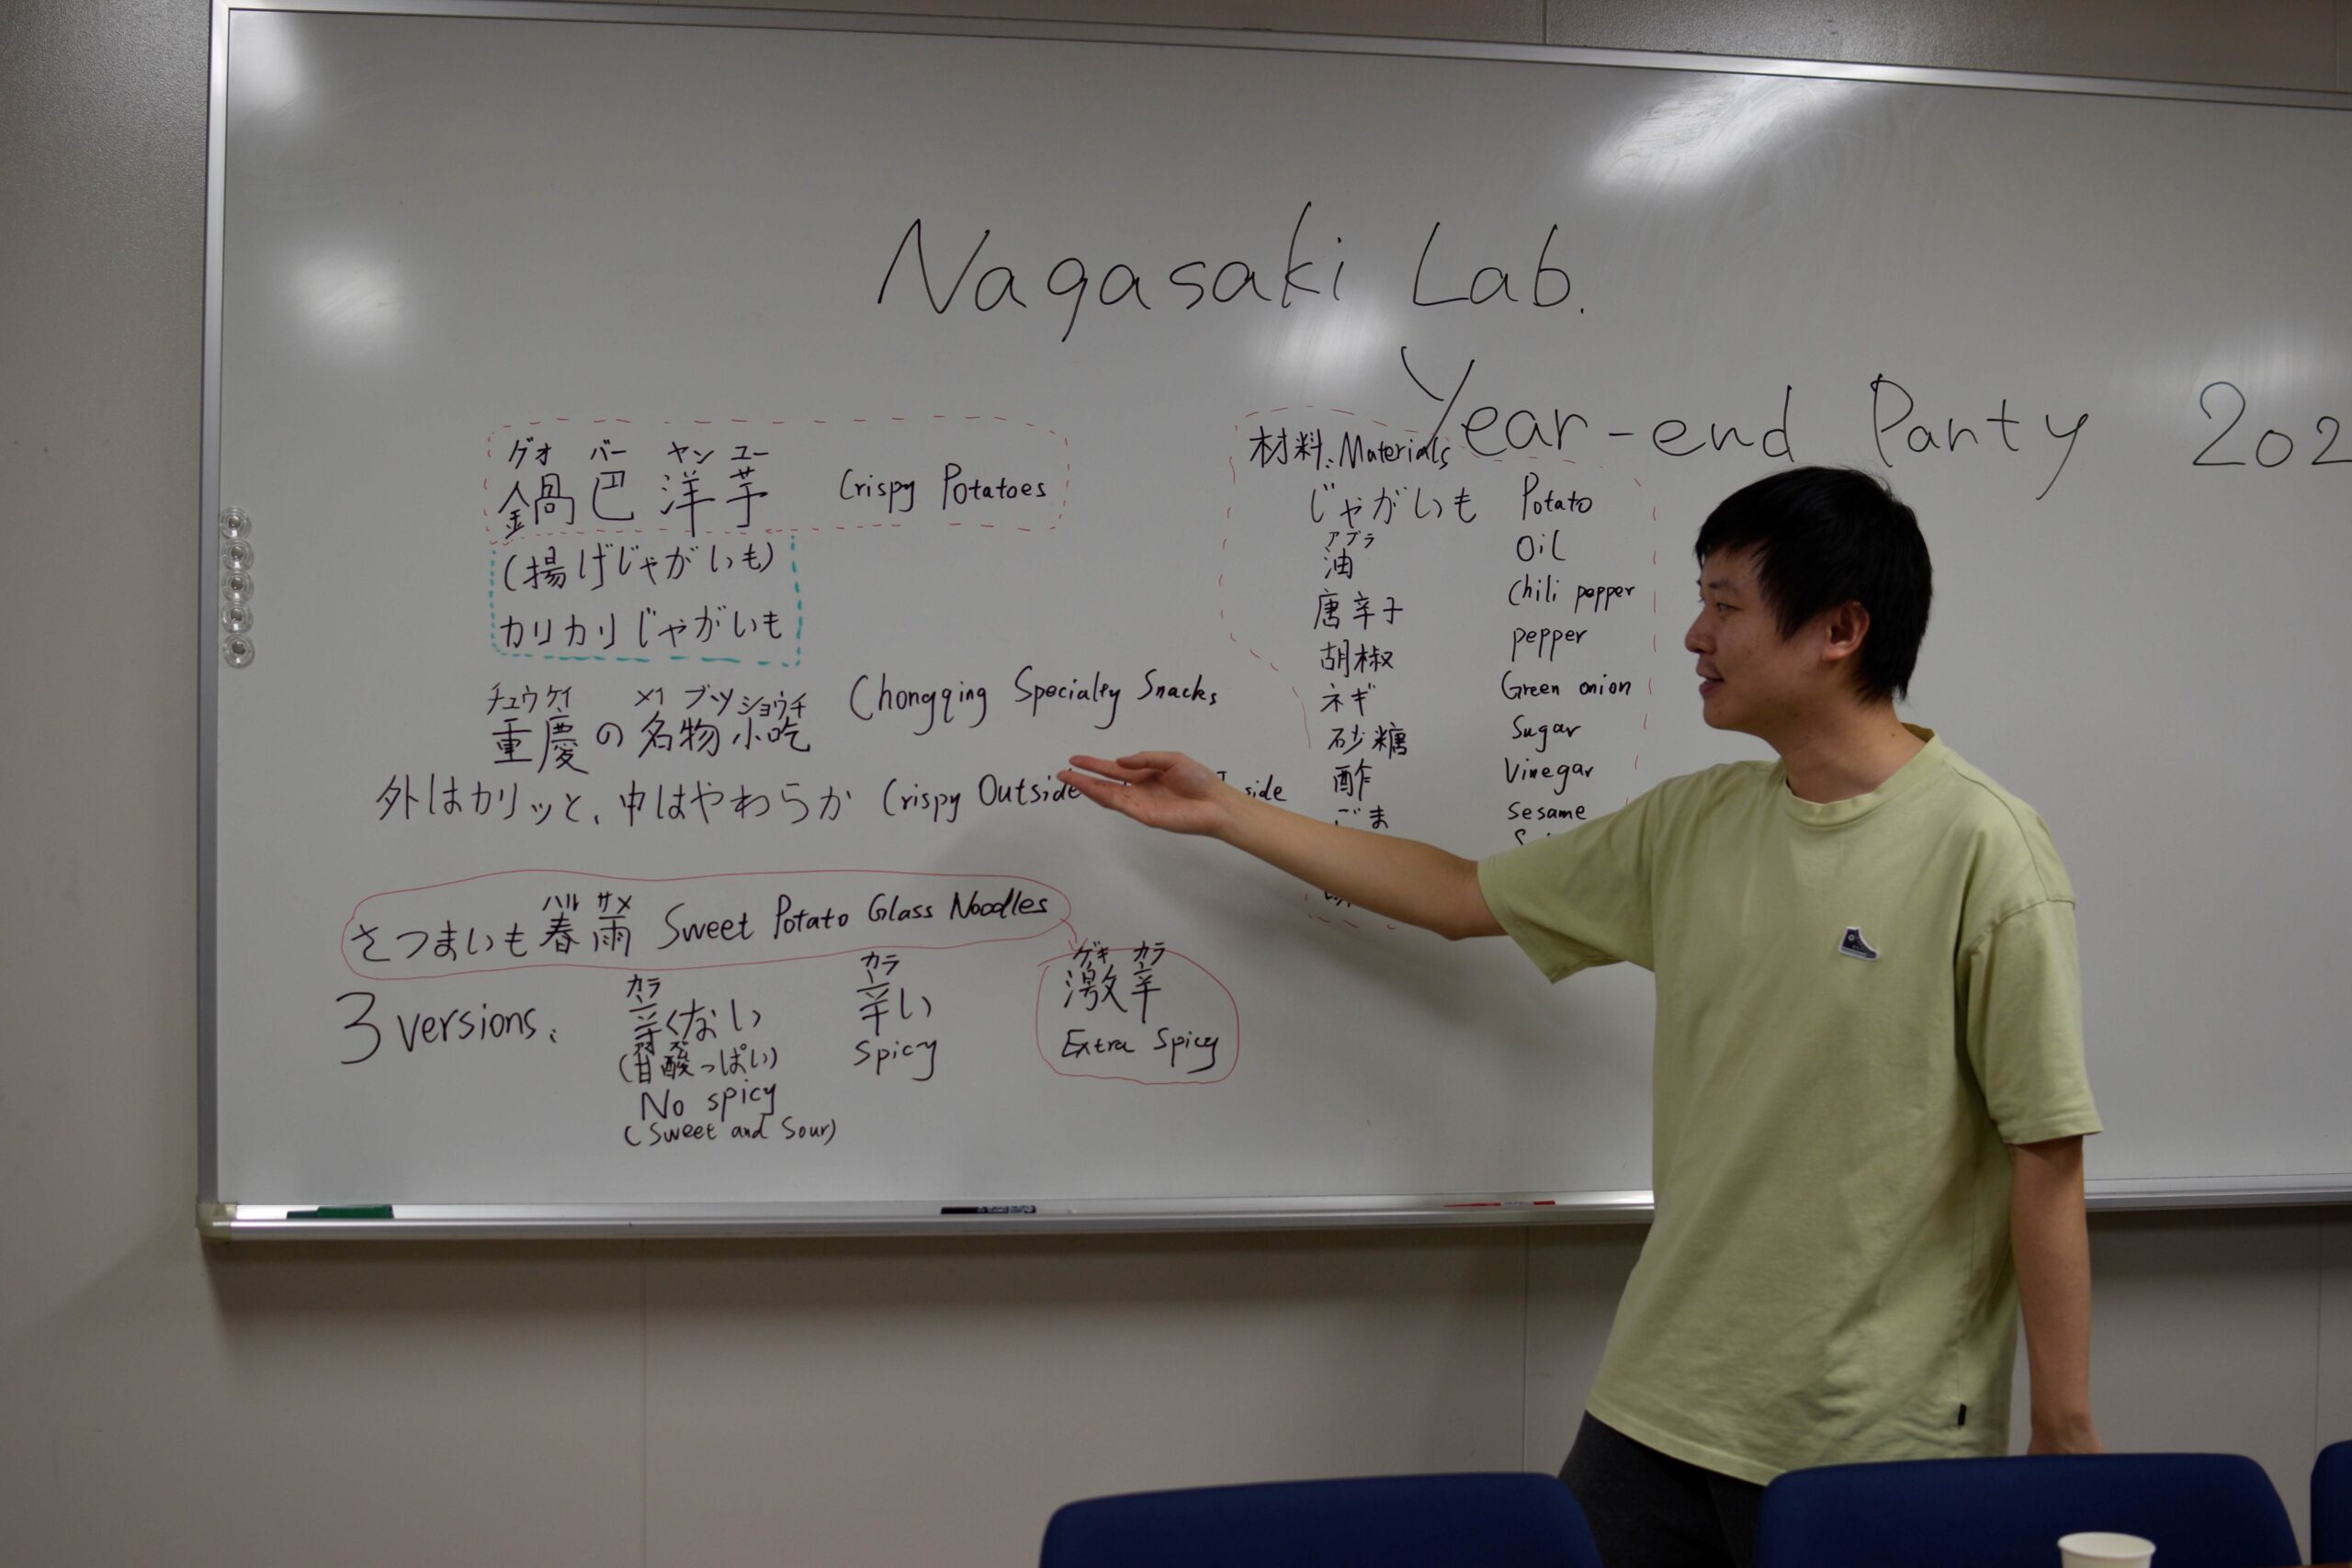 Nagasaki Lab.
Year-end Party 202
グオ バー ヤン ユー
鍋巴洋芋 Crispy Potatoes
(揚げじゃがいも)
カリカリじゃがいも
チュウケイ メイ ブツ ショウチ
重慶の名物小吃 Chongqing Specialty Snacks
外はカリッと、中はやわらか Crispy Outside
ハル サメ
さつまいも春雨 Sweet Potato Glass Noodles
3 versions:
カラ
辛くない
(甘酸っぱい)
No spicy
(Sweet and Sour)
カラ
辛い
Spicy
ゲキ カラ
激辛
Extra Spicy
材料: Materials
じゃがいも Potato
アブラ
油 Oil
唐辛子 Chili pepper
胡椒 pepper
ネギ Green onion
砂糖 Sugar
酢 Vinegar
ごま Sesame